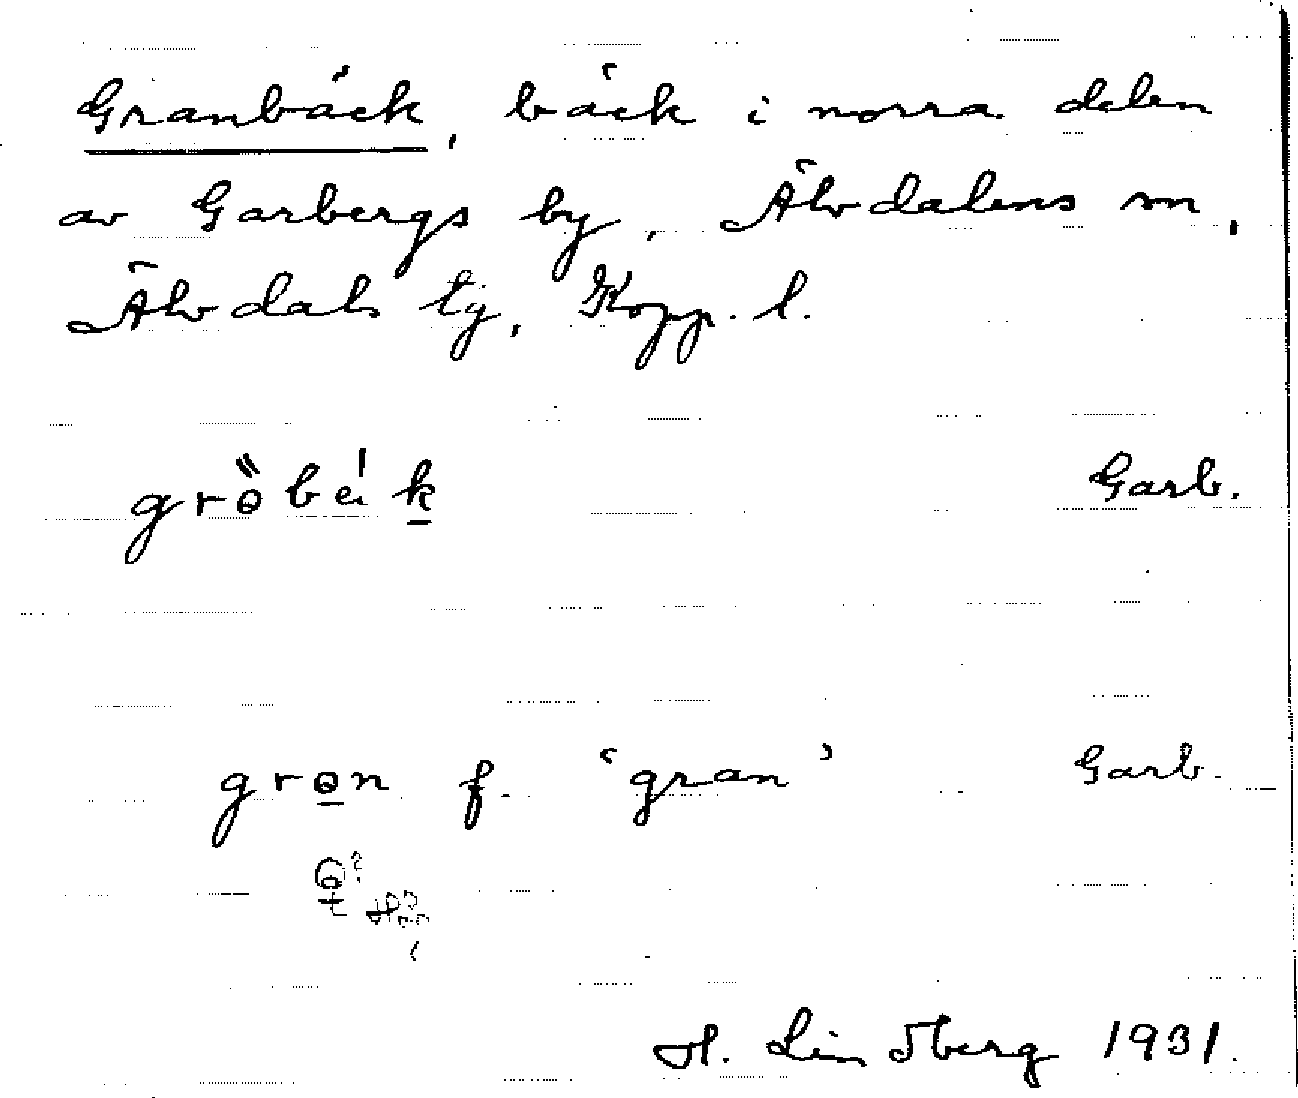 Granbäck, bäck i norra delen
av Garbergs by, Älvdalens sn,
Älvdals tg, Kopp. l.
Garb.
grɵn f. ‘gran’ Garb.
H. Lindberg 1931.